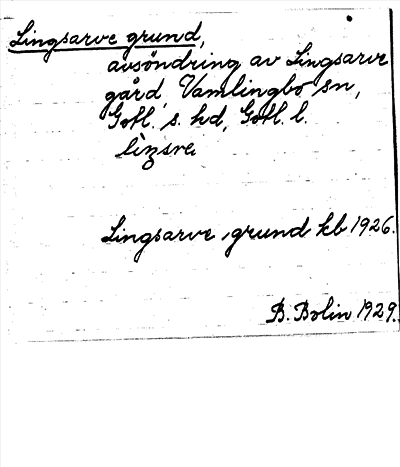 Lingsarve grund,
avsöndring av Lingsarve
gård, Vamlingbo sn,
Gotl. s. hd, Gotl. l.
Lingsarve grund kb 1926.
B. Bolin 1929.